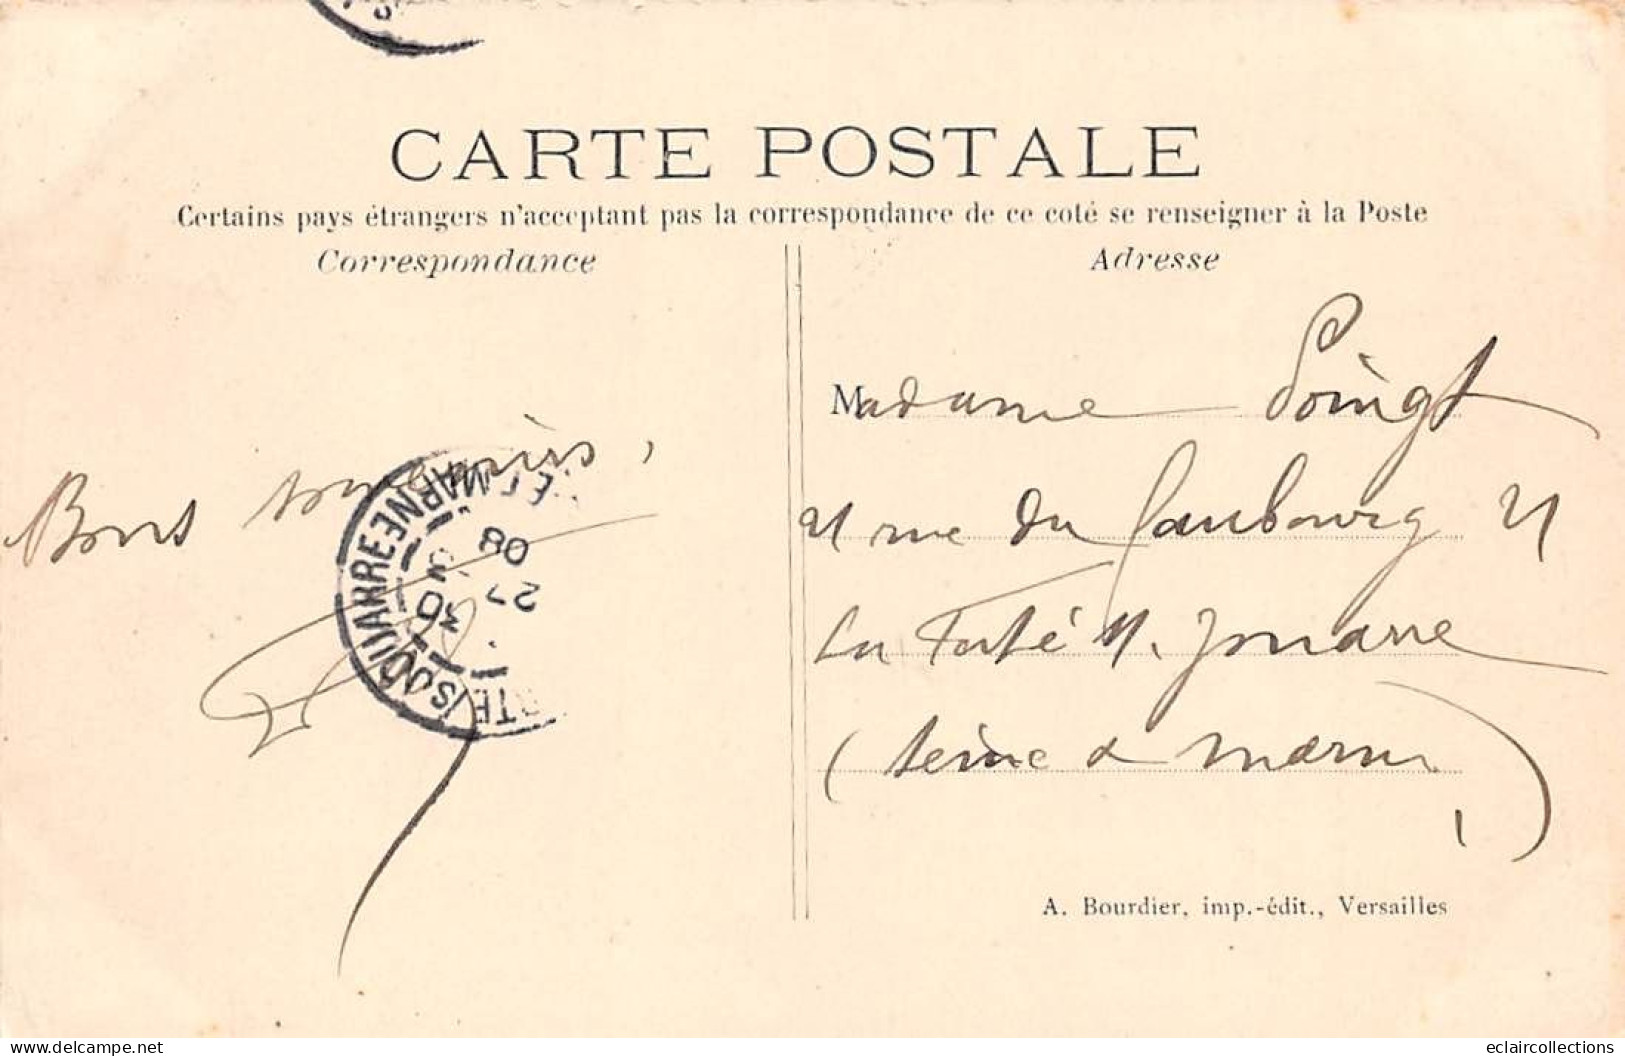 CARTE POSTALE
Certains pays étrangers n'acceptant pas la correspondance de ce coté se renseigner à la Poste
Correspondance
Adresse
Bons souvenirs,
Madame Poingt
21 rue du faubourg 21
La Ferté s. Jouarre
(Seine & Marne)
SEINE ET MARNE
08
27
A. Bourdier, imp.-édit., Versailles
eclaircollections
https://www.delcampe.net